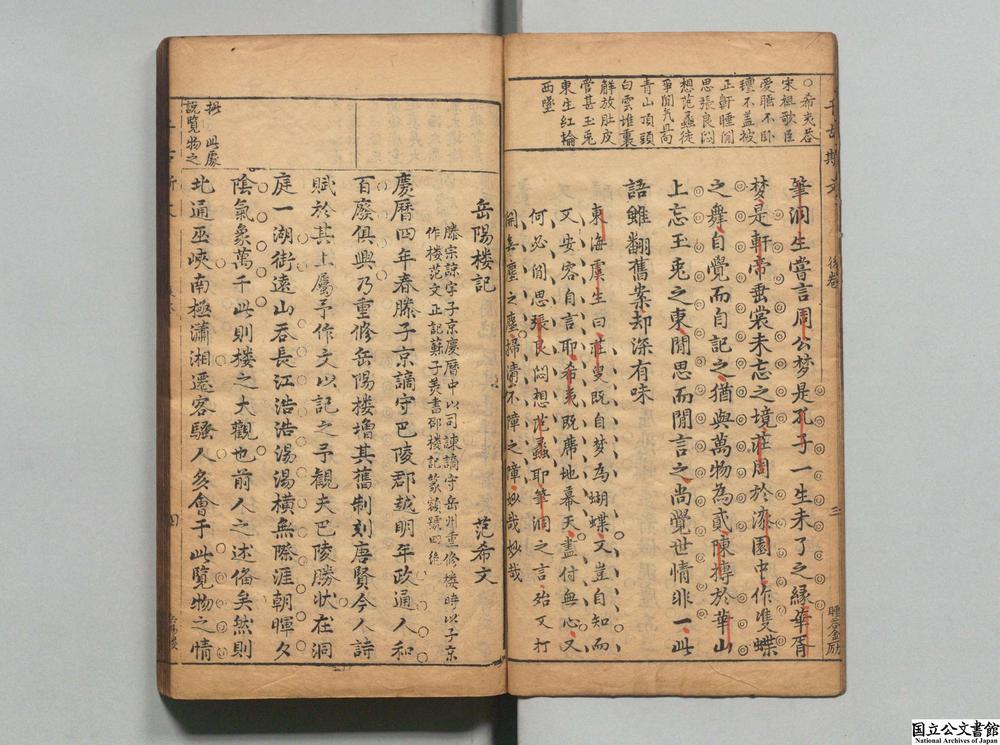 ○希夷答
宋祖歌臣
愛睡不臥
氊不盖被
正軒睡閒
思張良悶
想范蠡徒
爭閒氣爲
青山頂頭
白雲堆裏
解放肚皮
管甚玉兎
東生紅輪
西墜
後卷
三
筆洞生嘗言周公梦是孔子一生未了之縁華胥
梦是軒帝垂裳未忘之境莊周於漆園中作隻蝶
之舞自覺而自記之猶與萬物為貳陳摶於華山
上忘玉兎之東閒思而閒言之尚覺世情非一此
語雖翻舊案却深有味
東海虞生曰莊叟既自梦為蝴蝶又豈自知而
又安容自言耶希夷既席地幕天盡付無心又
何必閒思張良悶想范蠡耶筆洞之言殆又打
開無塵之塵掃淸不障之障妙哉妙哉
此處
說覽物之
岳陽楼記
范希文
滕宗諒字子京慶曆中以司諫謫守岳州重修楼時以子京
作楼范文正記蘇子美書邵楼記篆額號四絶
慶曆四年春滕子京謫守巴陵郡越明年政通人和
百廢俱興乃重修岳陽楼増其舊制刻唐賢今人詩
賦於其上屬予作文以記之予觀夫巴陵勝状在洞
庭一湖銜遠山吞長江浩浩湯湯橫無際涯朝暉夕
陰氣象萬千此則楼之大觀也前人之述俻矣然則
北通巫峽南極瀟湘遷客騷人多會于此覽物之情
四
国立公文書館
National Archives of Japan